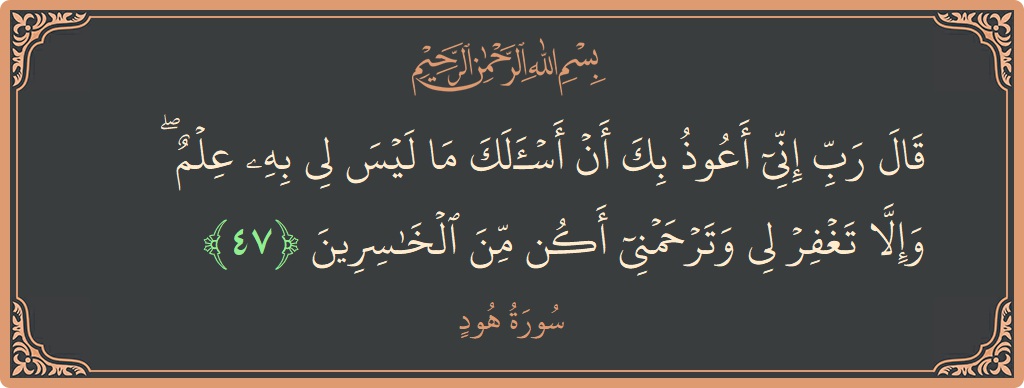 بِسْمِ اللهِ الرَّحْمٰنِ الرَّحِيْمِ
قَالَ رَبِّ إِنِّىٓ أَعُوذُ بِكَ أَنْ أَسْـَٔلَكَ مَا لَيْسَ لِى بِهِۦ عِلْمٌ ۖ
وَإِلَّا تَغْفِرْ لِى وَتَرْحَمْنِىٓ أَكُن مِّنَ ٱلْخَـٰسِرِينَ ﴿٤٧﴾
سُورَةُ هُودٍ